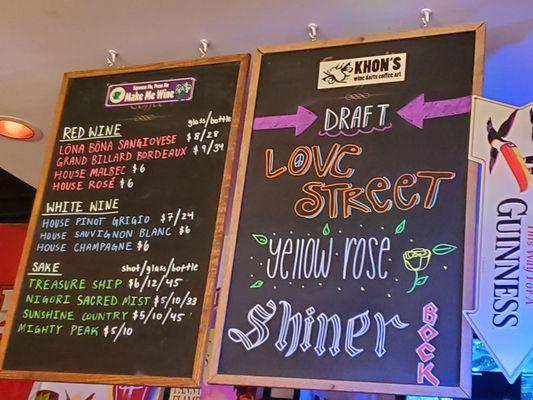 Squeeze Me, Press Me
Make Me Wine
COFFEE
RED WINE glass/bottle
LŌNA BŌNA SANGIOVESE $8/28
GRAND BILLARD BORDEAUX $9/34
HOUSE MALBEC $6
HOUSE ROSÉ $6
WHITE WINE
HOUSE PINOT GRIGIO $7/24
HOUSE SAUVIGNON BLANC $6
HOUSE CHAMPAGNE $6
SAKE shot/glass/bottle
TREASURE SHIP $6/12/45
NIGORI SACRED MIST $5/10/33
SUNSHINE COUNTRY $5/10/45
MIGHTY PEAK $5/10
KHON'S
wine darts coffee art
DRAFT
LOVE
STREET
yellow rose
Shiner
BOCK
This Way For A
GUINNESS